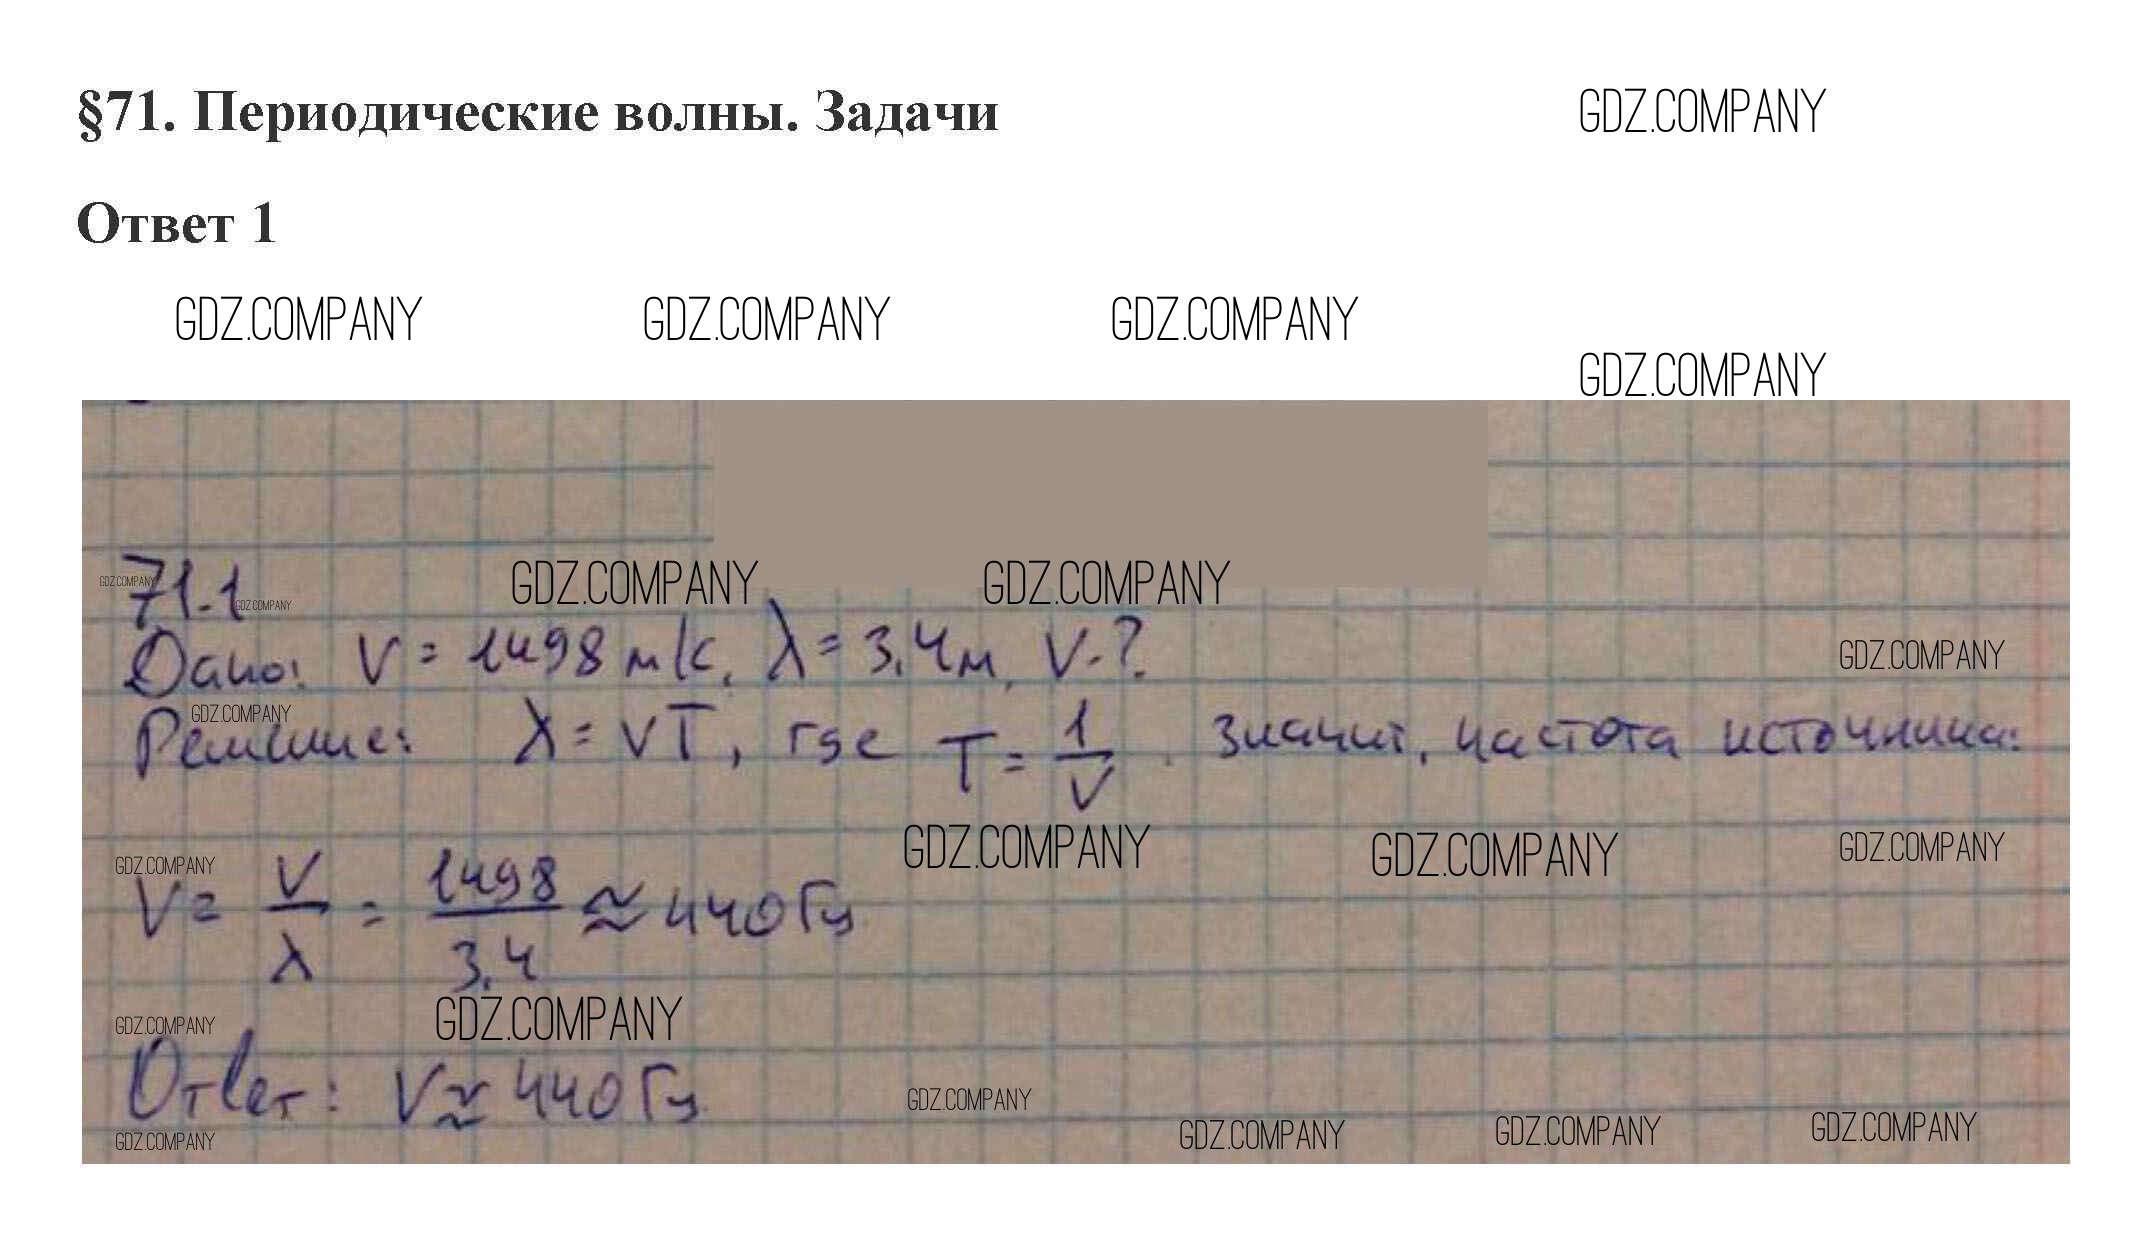 §71. Периодические волны. Задачи
GDZ.COMPANY
Ответ 1
GDZ.COMPANY GDZ.COMPANY GDZ.COMPANY
GDZ.COMPANY
71.1
GDZ.COMPANY GDZ.COMPANY GDZ.COMPANY GDZ.COMPANY
Дано: v = 1498 м/с, λ = 3,4 м, ν - ?
GDZ.COMPANY
GDZ.COMPANY
Решение: λ = vT, где T = 1/ν. Значит, частота источника:
GDZ.COMPANY GDZ.COMPANY GDZ.COMPANY GDZ.COMPANY
ν = v/λ = 1498/3,4 ≈ 440 Гц
GDZ.COMPANY GDZ.COMPANY
Ответ: ν ≈ 440 Гц
GDZ.COMPANY GDZ.COMPANY GDZ.COMPANY GDZ.COMPANY GDZ.COMPANY